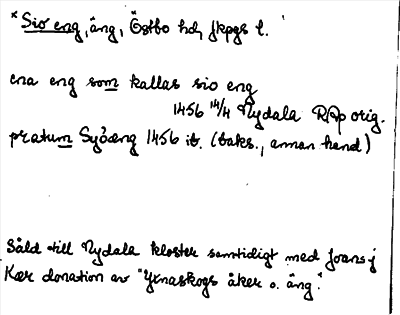 * Sio eng, äng, Östbo hd, Jkpgs l.
ena eng som kallas sio eng
1456 14/4 Nydala RAp orig.
pratum Syöæng 1456 ib. (baks., annan hand)
Såld till Nydala kloster samtidigt med Joans j
Kær donation av "Yxnaskogs åker o. äng."